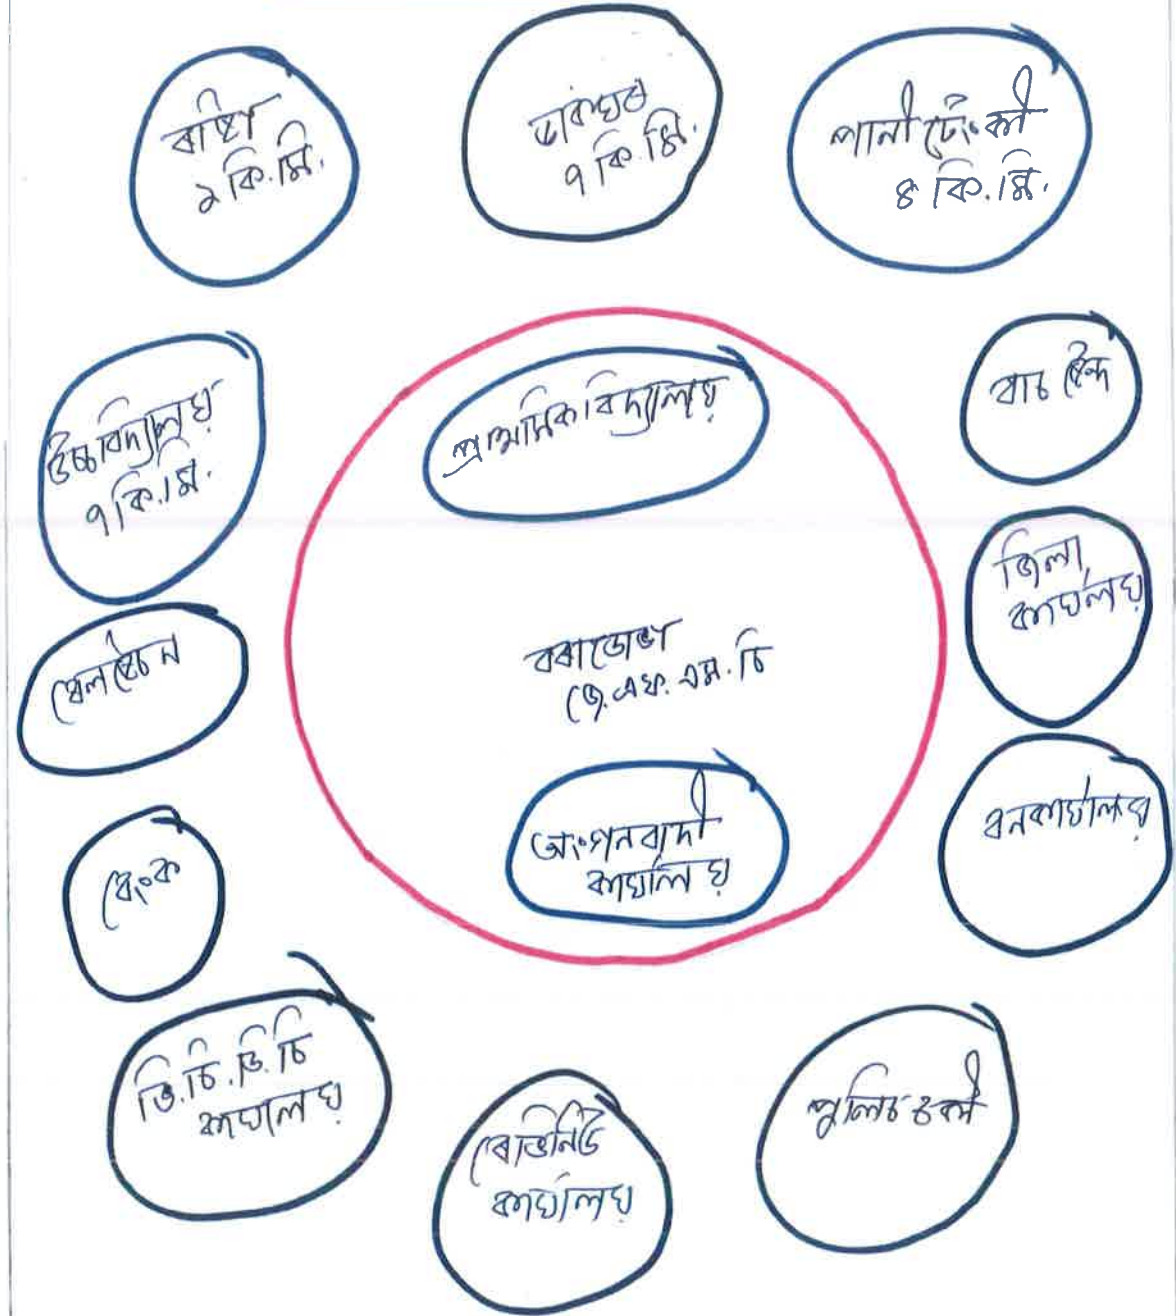 ৰাষ্টা
২ কি.মি.
ডাকঘৰ
৭ কি.মি.
পানী টেংকী
৪ কি.মি.
উচ্চ বিদ্যালয়
৭ কি.মি.
প্ৰাথমিক বিদ্যালয়
বাচ ষ্টেন্দ
জিলা
কাৰ্যালয়
ৰেল ষ্টেচন
জে.এফ.এম.চি
বনকাৰ্যালয়
অংগনবাদী
কাৰ্যালয়
বেংক
ভি.চি.ডি.চি
কাৰ্যালয়
ৰেভিনিউ
কাৰ্যালয়
পুলিচ চকী